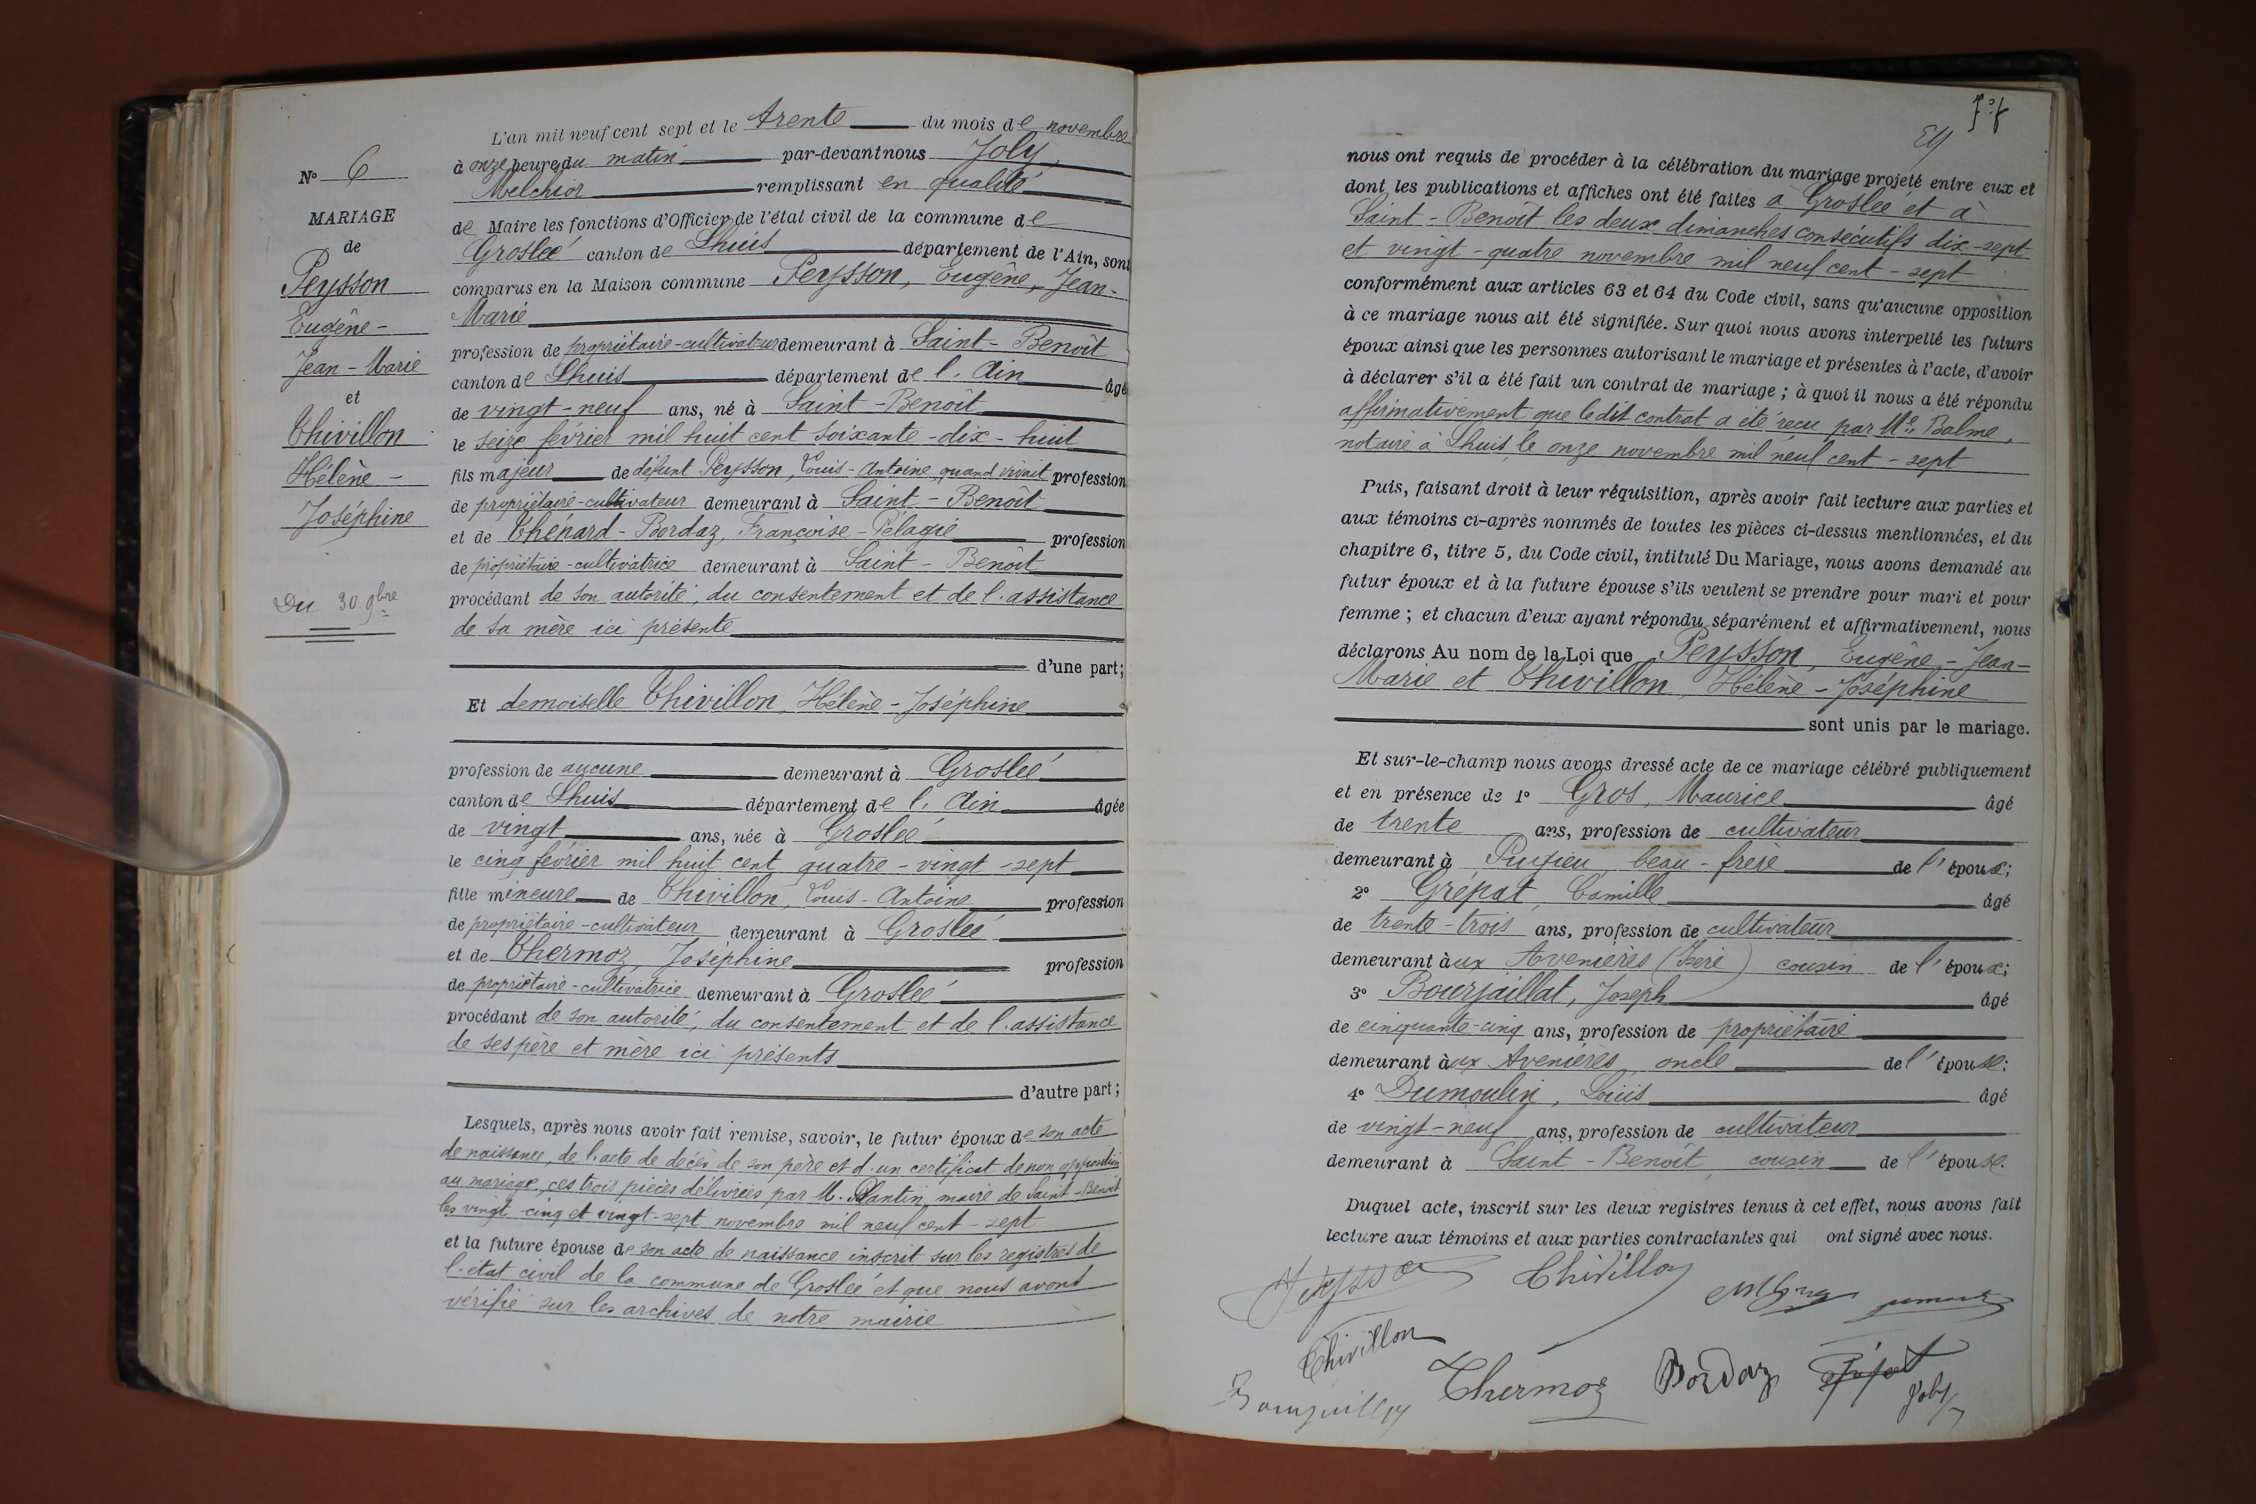 N° 6
MARIAGE
de
Peysson
Eugêne -
Jean - Marie
et
Thivillon
Hélène -
Joséphine
Du 30 9bre
L'an mil neuf cent sept et le trente du mois de novembre
à onze heures du matin par-devant nous Joly,
Melchior remplissant en qualité
de Maire les fonctions d'Officier de l'état civil de la commune de
Groslée canton de Lhuis département de l'Ain, sont
comparus en la Maison commune Peysson, Eugêne, Jean-
Marie
profession de propriétaire-cultivateur demeurant à Saint - Benoît
canton de Lhuis département de l'Ain âgé
de vingt - neuf ans, né à Saint - Benoît
le seize février mil huit cent soixante - dix - huit
fils majeur de défunt Peysson, Louis - Antoine, quand vivait profession
de propriétaire-cultivateur demeurant à Saint - Benoît
et de Thénard - Bordaz, Françoise - Pélagie profession
de propriétaire-cultivatrice demeurant à Saint - Benoît
procédant de son autorité, du consentement et de l'assistance
de sa mère ici présente
d'une part;
Et demoiselle Thivillon, Hélène - Joséphine
profession de aucune demeurant à Groslée
canton de Lhuis département de l'Ain âgée
de vingt ans, née à Groslée
le cinq février mil huit cent quatre - vingt - sept
fille mineure de Thivillon, Louis - Antoine profession
de propriétaire-cultivateur demeurant à Groslée
et de Thermoz, Joséphine profession
de propriétaire-cultivatrice demeurant à Groslée
procédant de son autorité, du consentement et de l'assistance
de ses père et mère ici présents
d'autre part;
Lesquels, après nous avoir fait remise, savoir, le futur époux de son acte
de naissance, de l'acte de décès de son père et d'un certificat de non opposition
au mariage, ces trois pièces délivrées par M. Plantin, maire de Saint - Benoît
les vingt - cinq et vingt - sept novembre mil neuf cent - sept
et la future épouse de son acte de naissance inscrit sur les registres de
l'état civil de la commune de Groslée et que nous avons
vérifié sur les archives de notre mairie
nous ont requis de procéder à la célébration du mariage projeté entre eux et
dont les publications et affiches ont été faites à Groslée et à
Saint - Benoît les deux dimanches consécutifs dix - sept
et vingt - quatre novembre mil neuf cent - sept
conformément aux articles 63 et 64 du Code civil, sans qu'aucune opposition
à ce mariage nous ait été signifiée. Sur quoi nous avons interpellé les futurs
époux ainsi que les personnes autorisant le mariage et présentes à l'acte, d'avoir
à déclarer s'il a été fait un contrat de mariage; à quoi il nous a été répondu
affirmativement que ledit contrat a été reçu par Me Balme,
notaire à Lhuis, le onze novembre mil neuf cent - sept
Puis, faisant droit à leur réquisition, après avoir fait lecture aux parties et
aux témoins ci-après nommés de toutes les pièces ci-dessus mentionnées, et du
chapitre 6, titre 5, du Code civil, intitulé Du Mariage, nous avons demandé au
futur époux et à la future épouse s'ils veulent se prendre pour mari et pour
femme; et chacun d'eux ayant répondu séparément et affirmativement, nous
déclarons Au nom de la Loi que Peysson, Eugêne - Jean -
Marie et Thivillon, Hélène - Joséphine
sont unis par le mariage.
Et sur-le-champ nous avons dressé acte de ce mariage célébré publiquement
et en présence de 1° Gros, Maurice âgé
de trente ans, profession de cultivateur
demeurant à Pugieu beau - frère de l'épouse;
2° Grépat, Camille âgé
de trente - trois ans, profession de cultivateur
demeurant aux Avenières (Isère) cousin de l'époux;
3° Bourjaillat, Joseph âgé
de cinquante-cinq ans, profession de propriétaire
demeurant aux Avenières, oncle de l'épouse;
4° Dumoulin, Louis âgé
de vingt - neuf ans, profession de cultivateur
demeurant à Saint - Benoît, cousin de l'épouse.
Duquel acte, inscrit sur les deux registres tenus à cet effet, nous avons fait
lecture aux témoins et aux parties contractantes qui ont signé avec nous.
Peysson Thivillon
Thivillon
Thermoz Bordaz Joly